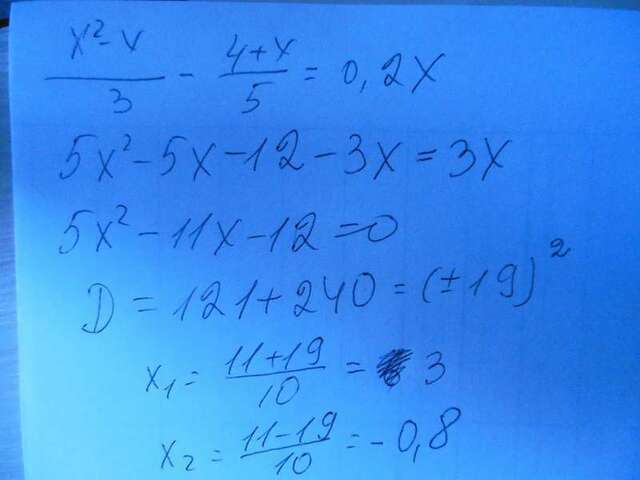 (x² - x)/3 - (4+x)/5 = 0,2x
5x² - 5x - 12 - 3x = 3x
5x² - 11x - 12 = 0
D = 121 + 240 = (±19)²
x₁ = (11+19)/10 = 3
x₂ = (11-19)/10 = -0,8